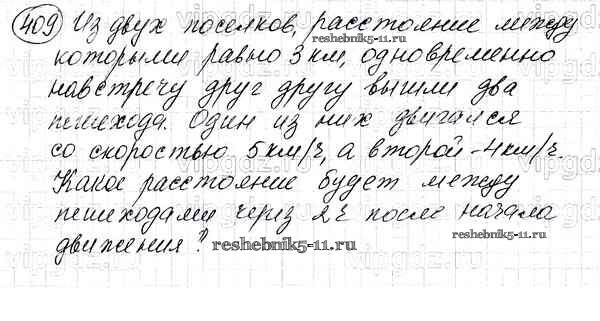 409 Из двух поселков, расстояние между
которыми равно 3 км, одновременно
reshebnik5-11.ru
навстречу друг другу вышли два
пешехода. Один из них двигался
со скоростью 5 км/ч, а второй - 4 км/ч.
Какое расстояние будет между
пешеходами через 2 ч после начала
reshebnik5-11.ru
движения?
reshebnik5-11.ru